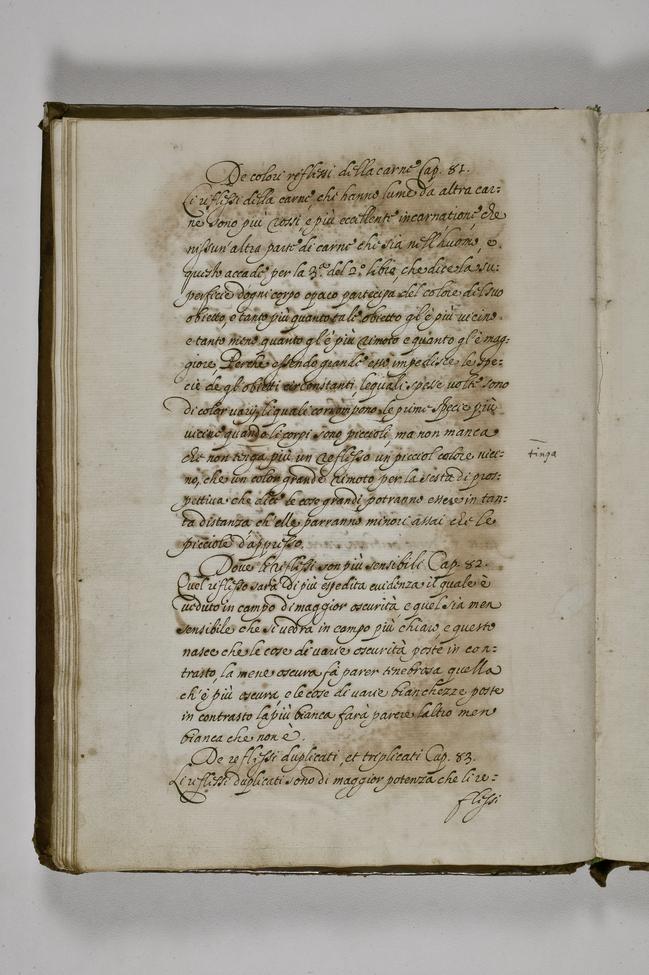 De colori reflessi della carne Cap. 81.
Li reflessi della carne, che hanno lume da altra car=
ne sono più rossi, e più eccellente incarnatione, che
nissun'altra parte di carne che sia nell'huomo, e
questo accade per la 3.ª del 2.º libro, che dice la su=
perficie d'ogni corpo opaco partecipa del colore del suo
obietto, e tanto più quanto tale obietto gl'è più vicino
e tanto meno quanto gl'è più rimoto e quanto gl'è mag=
giore. Perche essendo grande esso impedisce le spe=
cie de gl'obietti circonstanti, lequali spesse volte sono
di color varij, li quali corrompono le prime specie più
vicine quando li corpi sono piccioli, ma non manca
che non tenga più un reflesso un picciol colore vici=
no, che un colore grande rimoto per la sesta di pros=
pettiva che dice le cose grandi potranno essere in tan=
ta distanza ch'elle parranno minori assai che le
picciole d'appresso.
tinga
Dove li reflessi son più sensibili Cap. 82.
Quel reflesso sarà di più espedita evidenza il quale è
veduto in campo di maggior oscurità e quel sia men
sensibile che si vedrà in campo più chiaro, e questo
nasce che le cose di varie oscurità poste in con=
trasto, la mene oscura fà parer tenebrosa quella
ch'è più oscura e le cose di varie bianchezze poste
in contrasto la più bianca farà parere l'altro men
bianca che non è.
De reflessi duplicati, et triplicati Cap. 83.
Li reflessi duplicati sono di maggior potenza che li re=
flessi